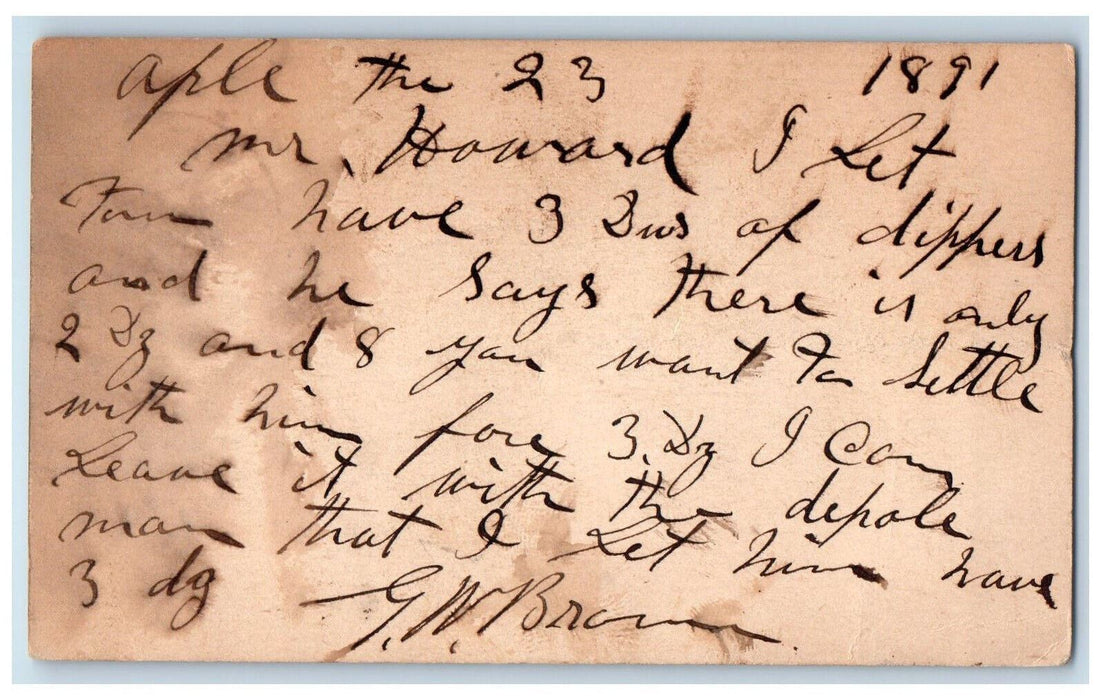 Aple the 23 1891
Mr. Howard I Let
Tom have 3 Dws of dippers
and he Says there is only
2 Dz and 8 you want to Settle
with him fore 3. Dz I Can
Leave it with the depole
man that I Let him have
3 dz G. W. Brown